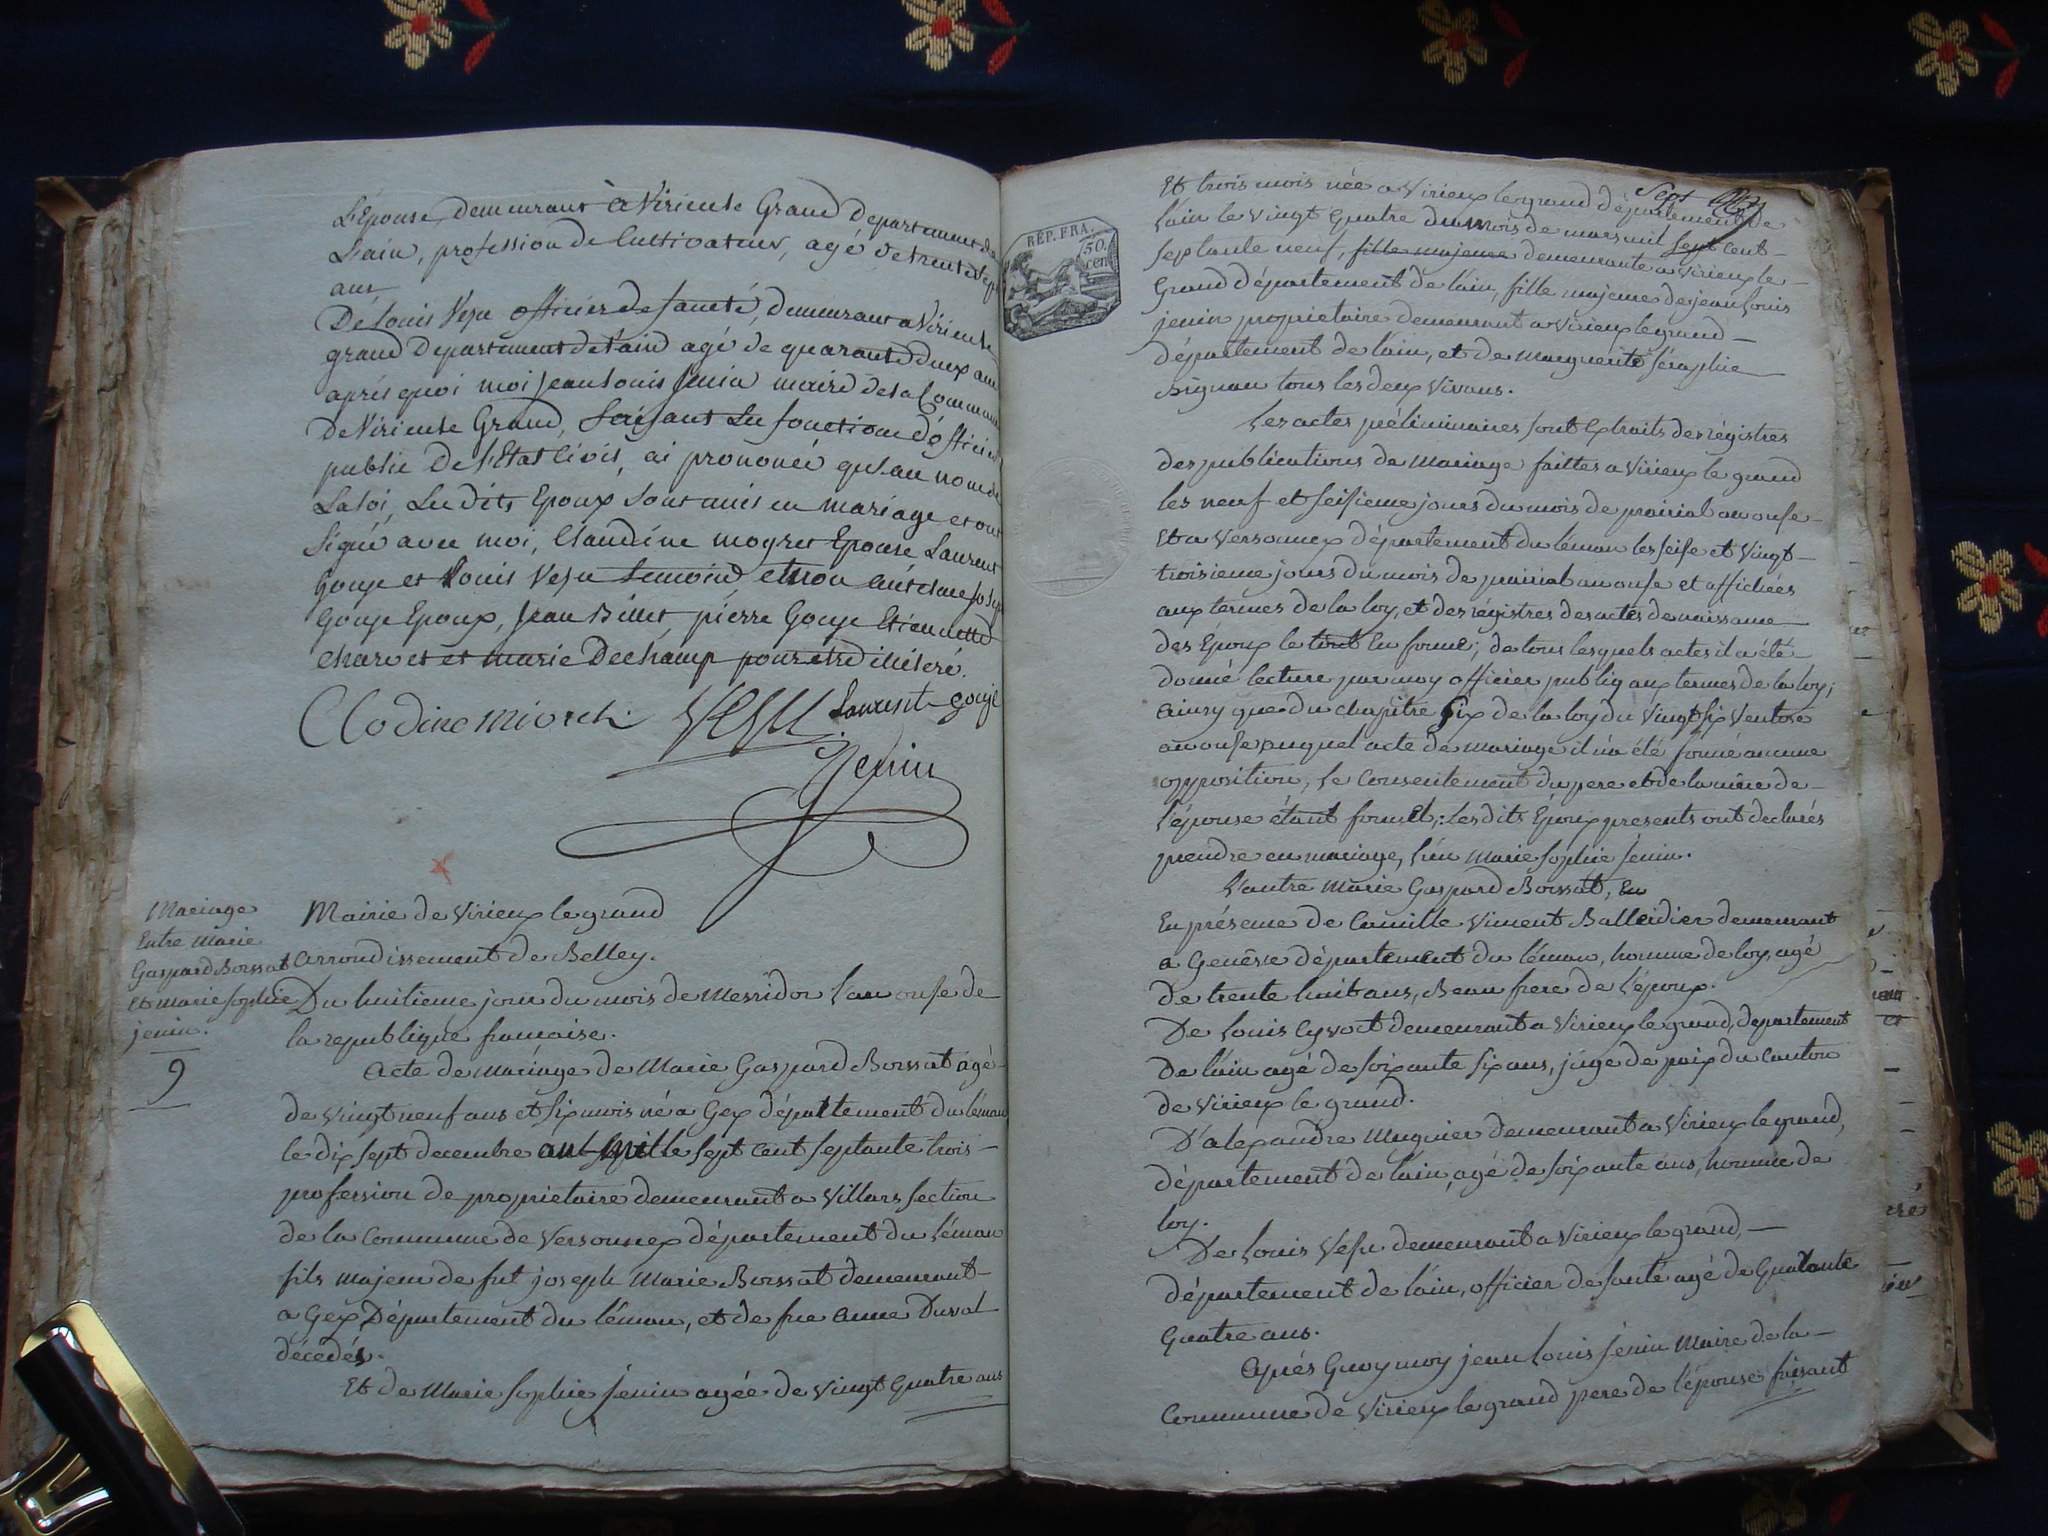 L'Epouse, demeurant à Virieu le Grand Departement de
L'ain, profession de Cultivateur, agé de trente sept
ans
De Louis Vesu officier de santé, demeurant a Virieu le
grand Departement de Lain agé de quarante deux ans
après quoi moi Jean Louis Jenin maire de la Commune
De Virieu le Grand, faisant les fonctions d'officier
public De l'Etat Civil, ai prononcé qu'au nom de
La Loi, Les dits Epoux sont unis en mariage et ont
signé avec moi, Claudine Epouse Laurent
Gouje et Louis Vesu temoins, et non
Gouje Epoux, Jean Billet pierre Gouje Etiennette
Charvet et marie Dechamp pour etre illiteré.
Clodine miorch VESU Laurent gouje
Jenin
Mariage
Entre Marie
Gaspard Boissat
et marie sophie
jenin.
9
Mairie de Virieux le grand
arrondissement de Belley.
Du huitieme jour du mois de Messidor l'an onse de
la republique francaise.
Acte de Mariage de Marie Gaspard Boissat agé
de vingt neuf ans et six mois né a Gex département du léman
le dix sept decembre mille sept cent septante trois
profession de proprietaire demeurant a Villars section
de la Commune de Versonnex département du léman
fils majeur de fut joseph Marie Boissat demeurant
a Gex Département du léman, et de fue anne Duval
décedés.
Et de Marie sophie jenin agée de vingt quatre ans
Sept
Et trois mois née a Virieux le grand département de
l'ain le vingt quatre du mois de mars mil sept cent
septante neuf, fille majeure demeurante a virieux le
Grand département de l'ain, fille majeure de jean louis
jenin proprietaire demeurant a virieux le grand
département de l'ain, et de Marguerite séraphie
Mignan tous les deux Vivans.
RÉP. FRA.
50
cen
Les actes préliminaires sont Extraits des régistres
des publications de Mariage faittes a Virieux le grand
les neuf et seisieme jours du mois de prairial an onse
Et a Versonnex département du léman les seise et vingt
troisieme jours du mois de prairial an onse et affichées
aux termes de la loy, et des régistres des actes de naissance
des Epoux le tout En forme; de tous lesquels actes il a été
donné lecture par moy officier public aux termes de la loy;
ainsy que du chapitre six de la loy du vingt six Ventose
an onse auquel acte de mariage il n'a été formé aucune
opposition, le Consentement du pere et de la mere de
l'épouse étant formel; les dits Epoux presents ont declarés
prendre en mariage, l'un Marie sophie jenin.
L'autre Marie Gaspard Boissat, En
En présence de Camille Viment Balleidier demeurant
a Genève département du léman, homme de loy, agé
de trente huit ans, Beau frere de l'époux.
De louis Cyvoct demeurant a Virieux le grand, departement
De l'ain agé de soixante six ans, juge de paix du Canton
de Virieux le grand.
D'alexandre Mugnier demeurant a Virieux le grand,
département de l'ain, agé de soixante ans, homme de
loy.
De louis Vesu demeurant a Virieux le grand,
département de l'ain, officier de santé agé de Quarante
Quatre ans.
Après Quoy moy jean louis jenin Maire de la
Commune de Virieux le grand pere de l'épouse faisant